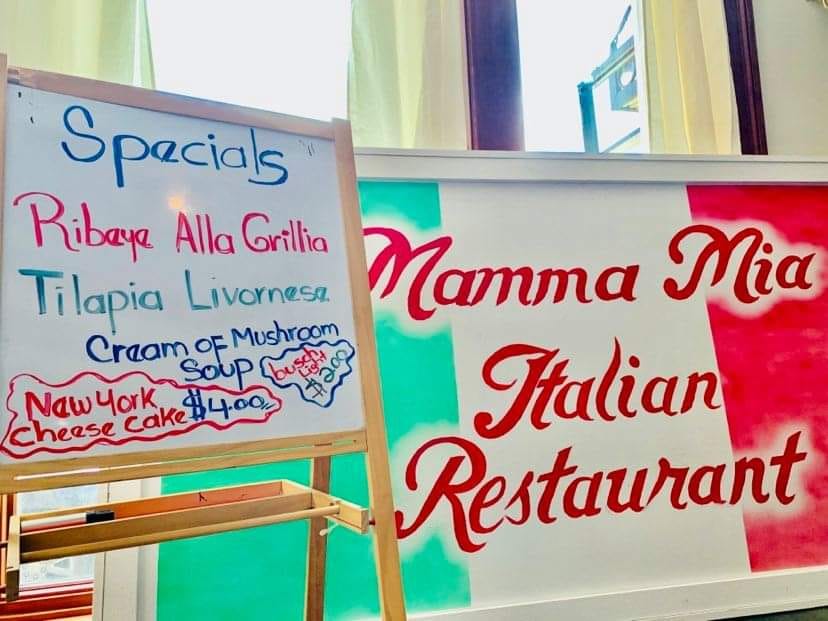 Specials
Ribeye Alla Grillia
Tilapia Livornese
Cream of Mushroom
Soup
busch
Light
$2.00
New York
Cheese Cake $4.00
Mamma Mia
Italian
Restaurant